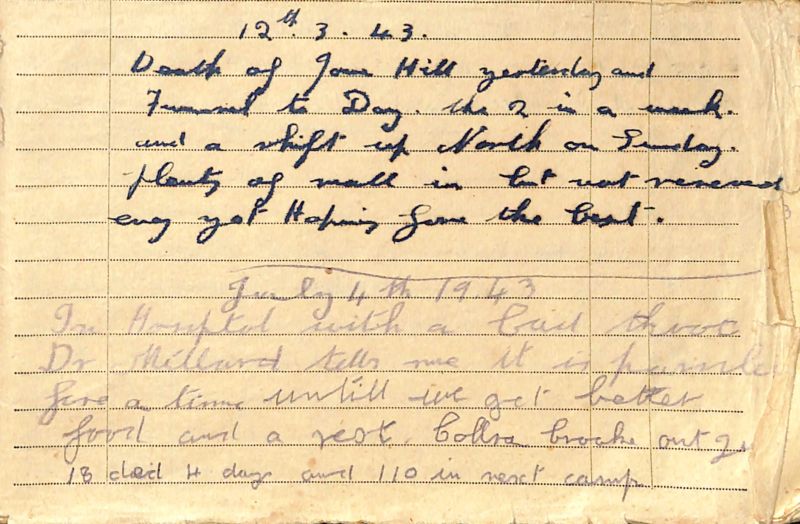 12th. 3. 43.
Death of Hill yesterday and
Funnel to Day. the 2 in a week.
and a shift up North on Sunday.
plenty of mall in but not reseved
eney yet Hoping fore the best.
July 4th 1943
In Hosptol with a bad throt
Dr Millard tells me it is
fore a time untill we get better
food and a rest. Collra brocke out
18 ded 4 days and 110 in next camp